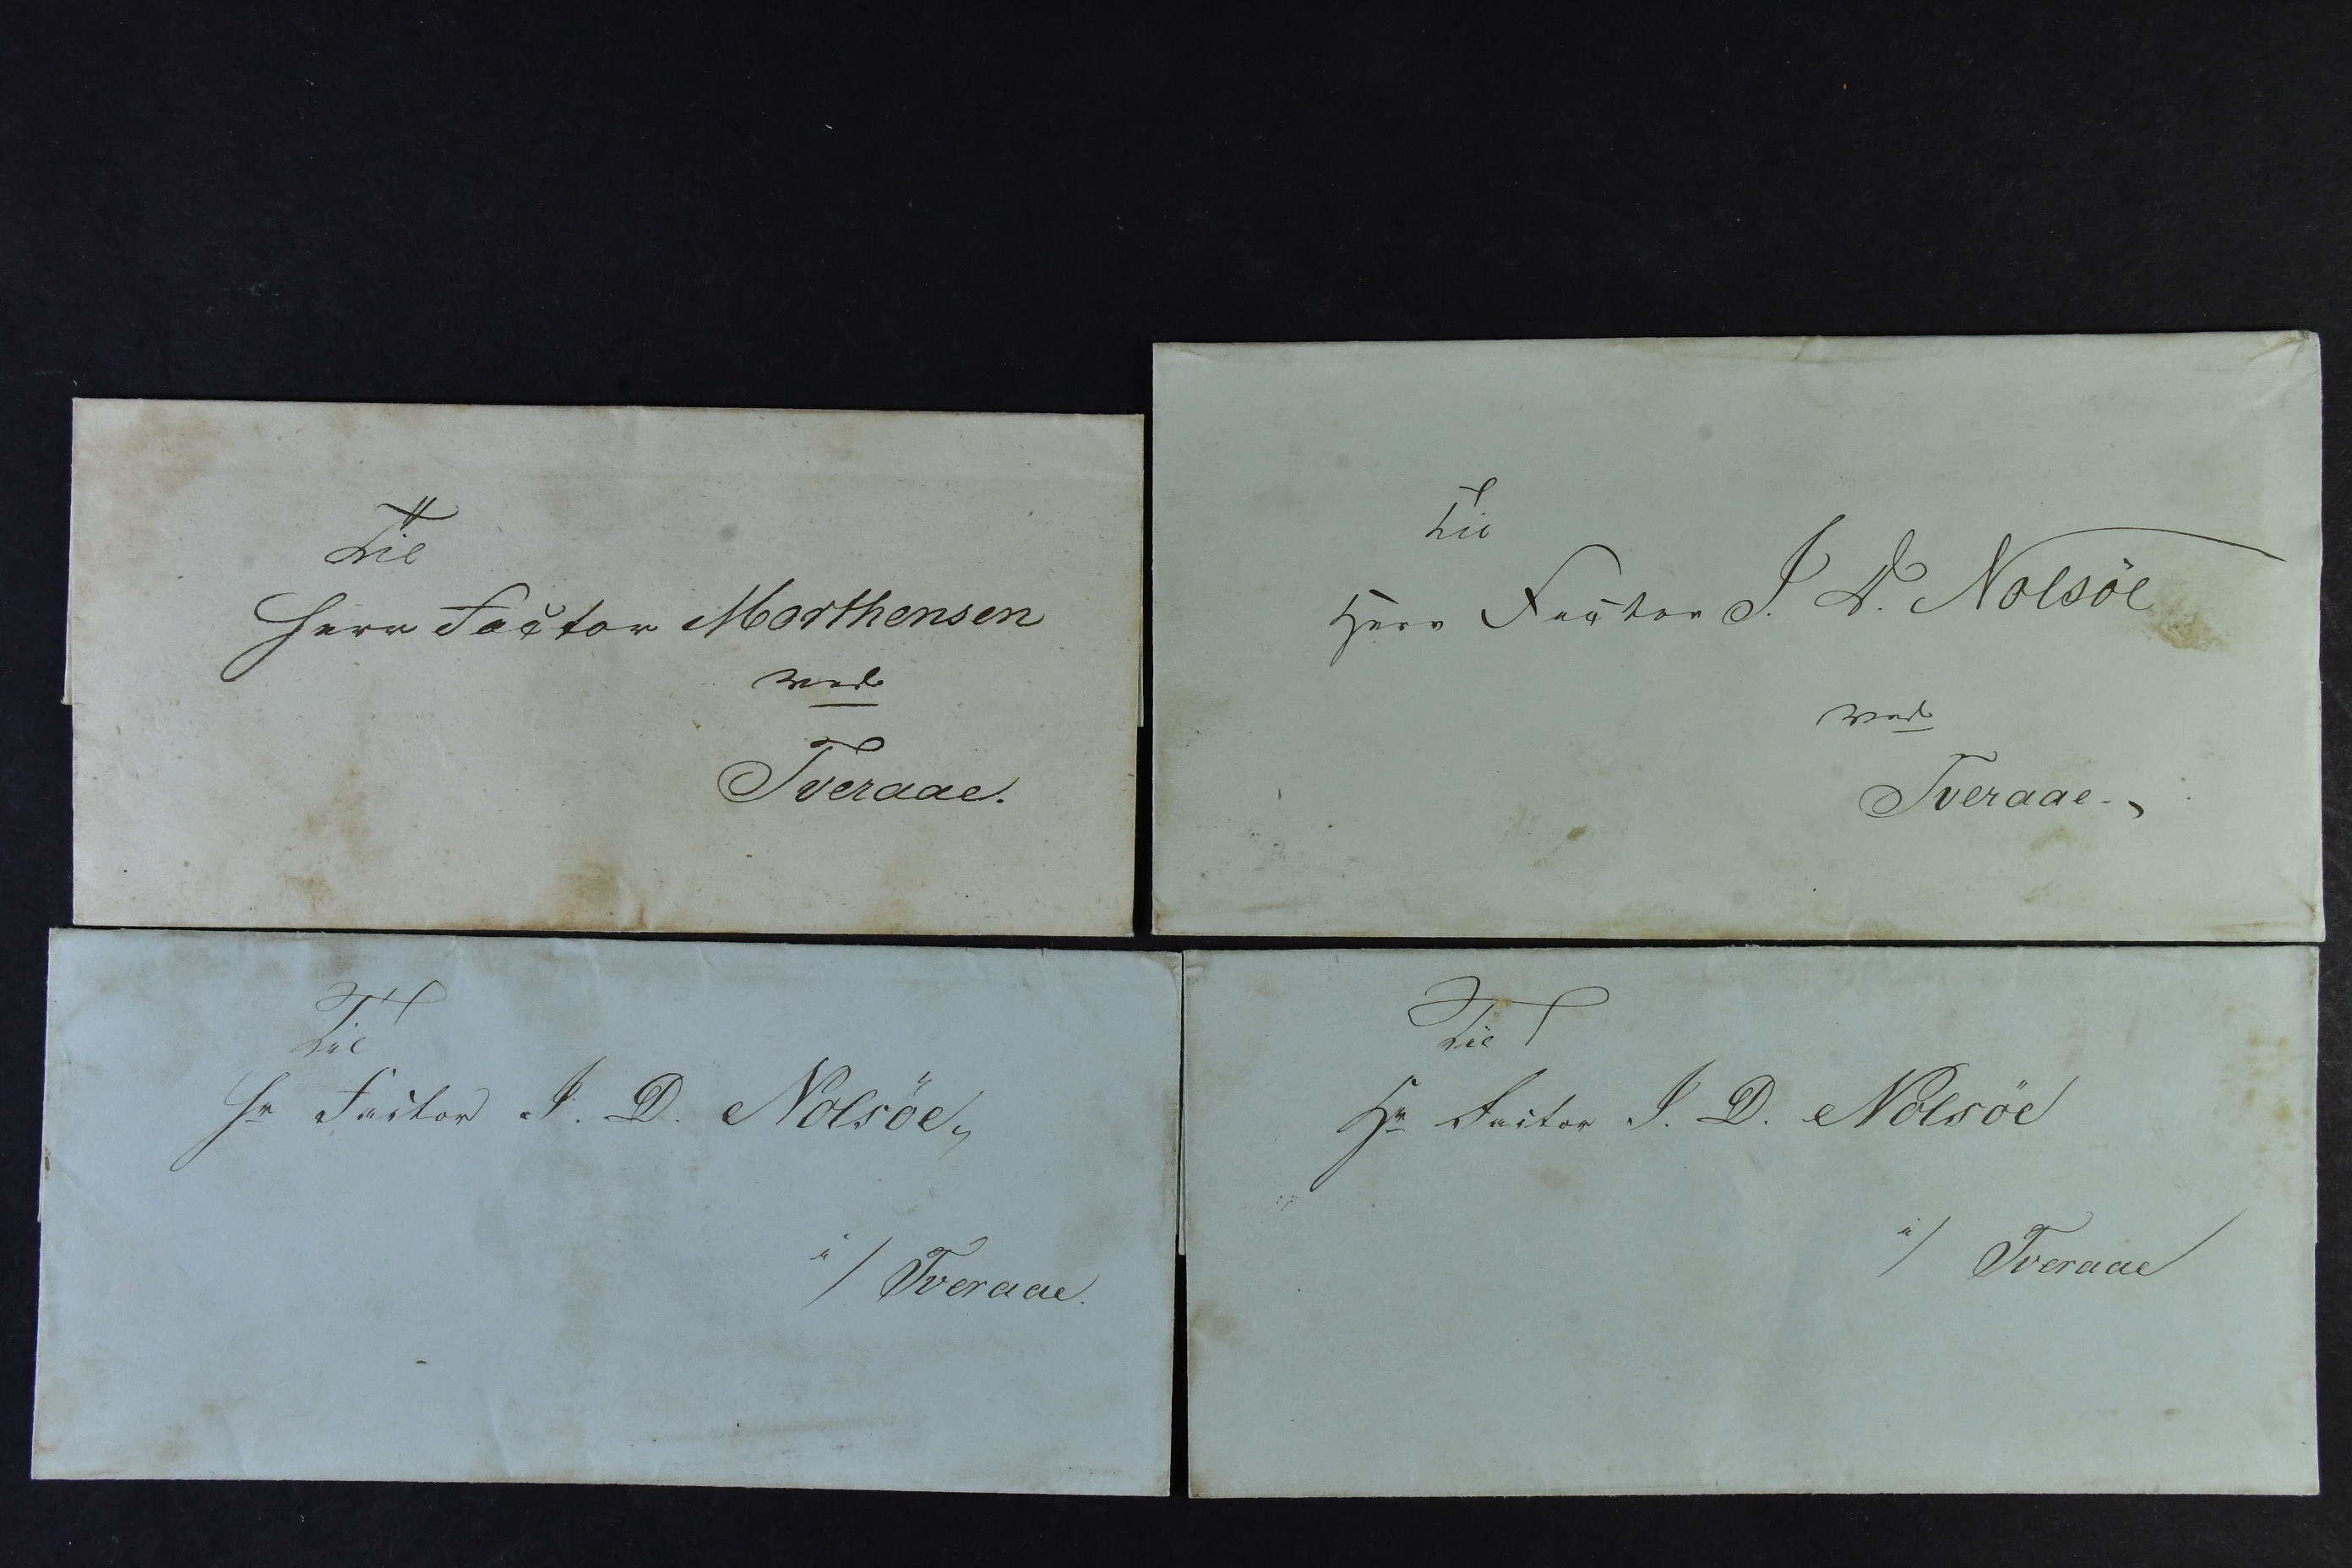 Til
Herr Factor Morthensen
ved
Tveraae.
Til
Herr Factor J. D. Nolsöe
ved
Tveraae.
Til
Hr Factor J. D. Nolsöe,
i/ Tveraae.
Til
Hr Factor J. D. Nolsöe
i/ Tveraae